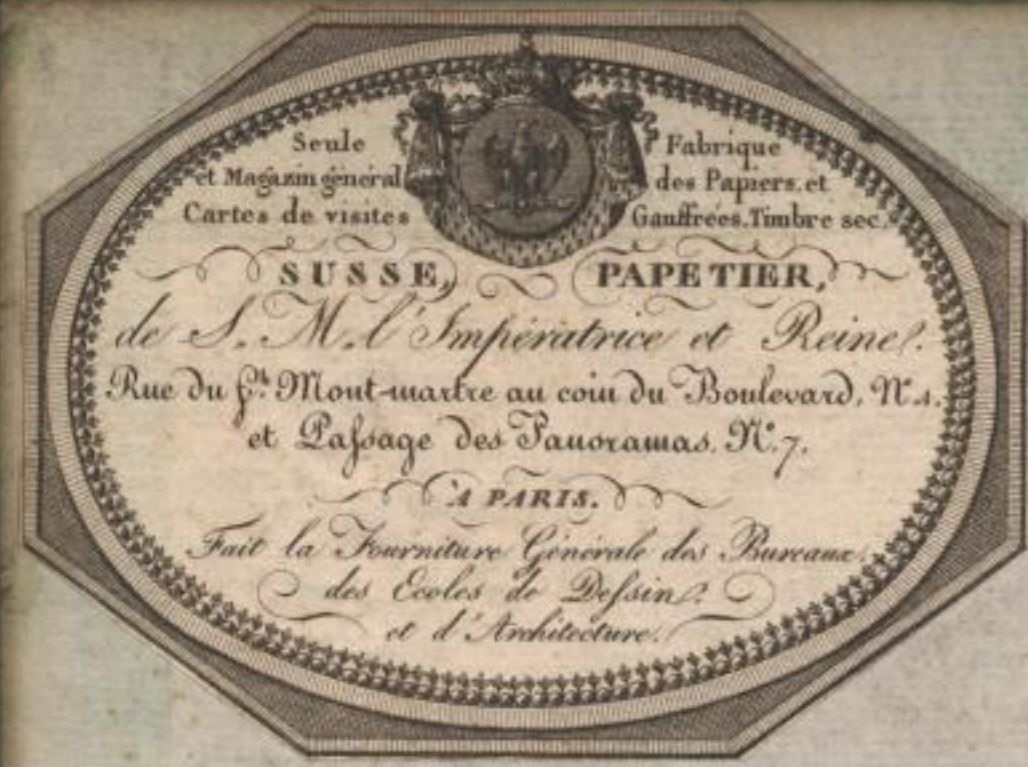 Seule Fabrique
et Magazin général des Papiers, et
Cartes de visites Gauffrées, Timbre sec.
SUSSE, PAPETIER,
de S. M. l'Impératrice et Reine.
Rue du fb. Mont-martre au coin du Boulevard, N.º 4.
et Paſsage des Panoramas. N.º 7.
A PARIS.
Fait la Fourniture Générale des Bureaux,
des Ecoles de Deſsin,
et d'Architecture.